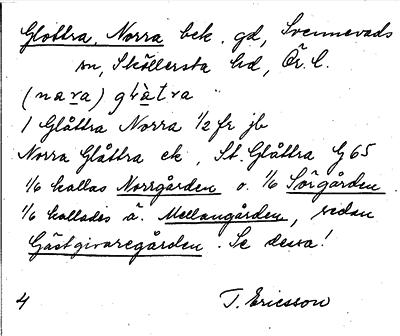 Glottra, Norra bek. gd, Svennevads
sn, Sköllersta hd, Ör. l.
(nara) glàtra
1 Glåttra Norra 1/2 fr jb
Norra Glåttra ek, St. Glåttra G 65
1/6 kallas Norrgården o. 1/6 Sörgården
1/6 kallades ä. Mellangården, sedan
Gästgivaregården. Se dessa!
4 T. Ericsson